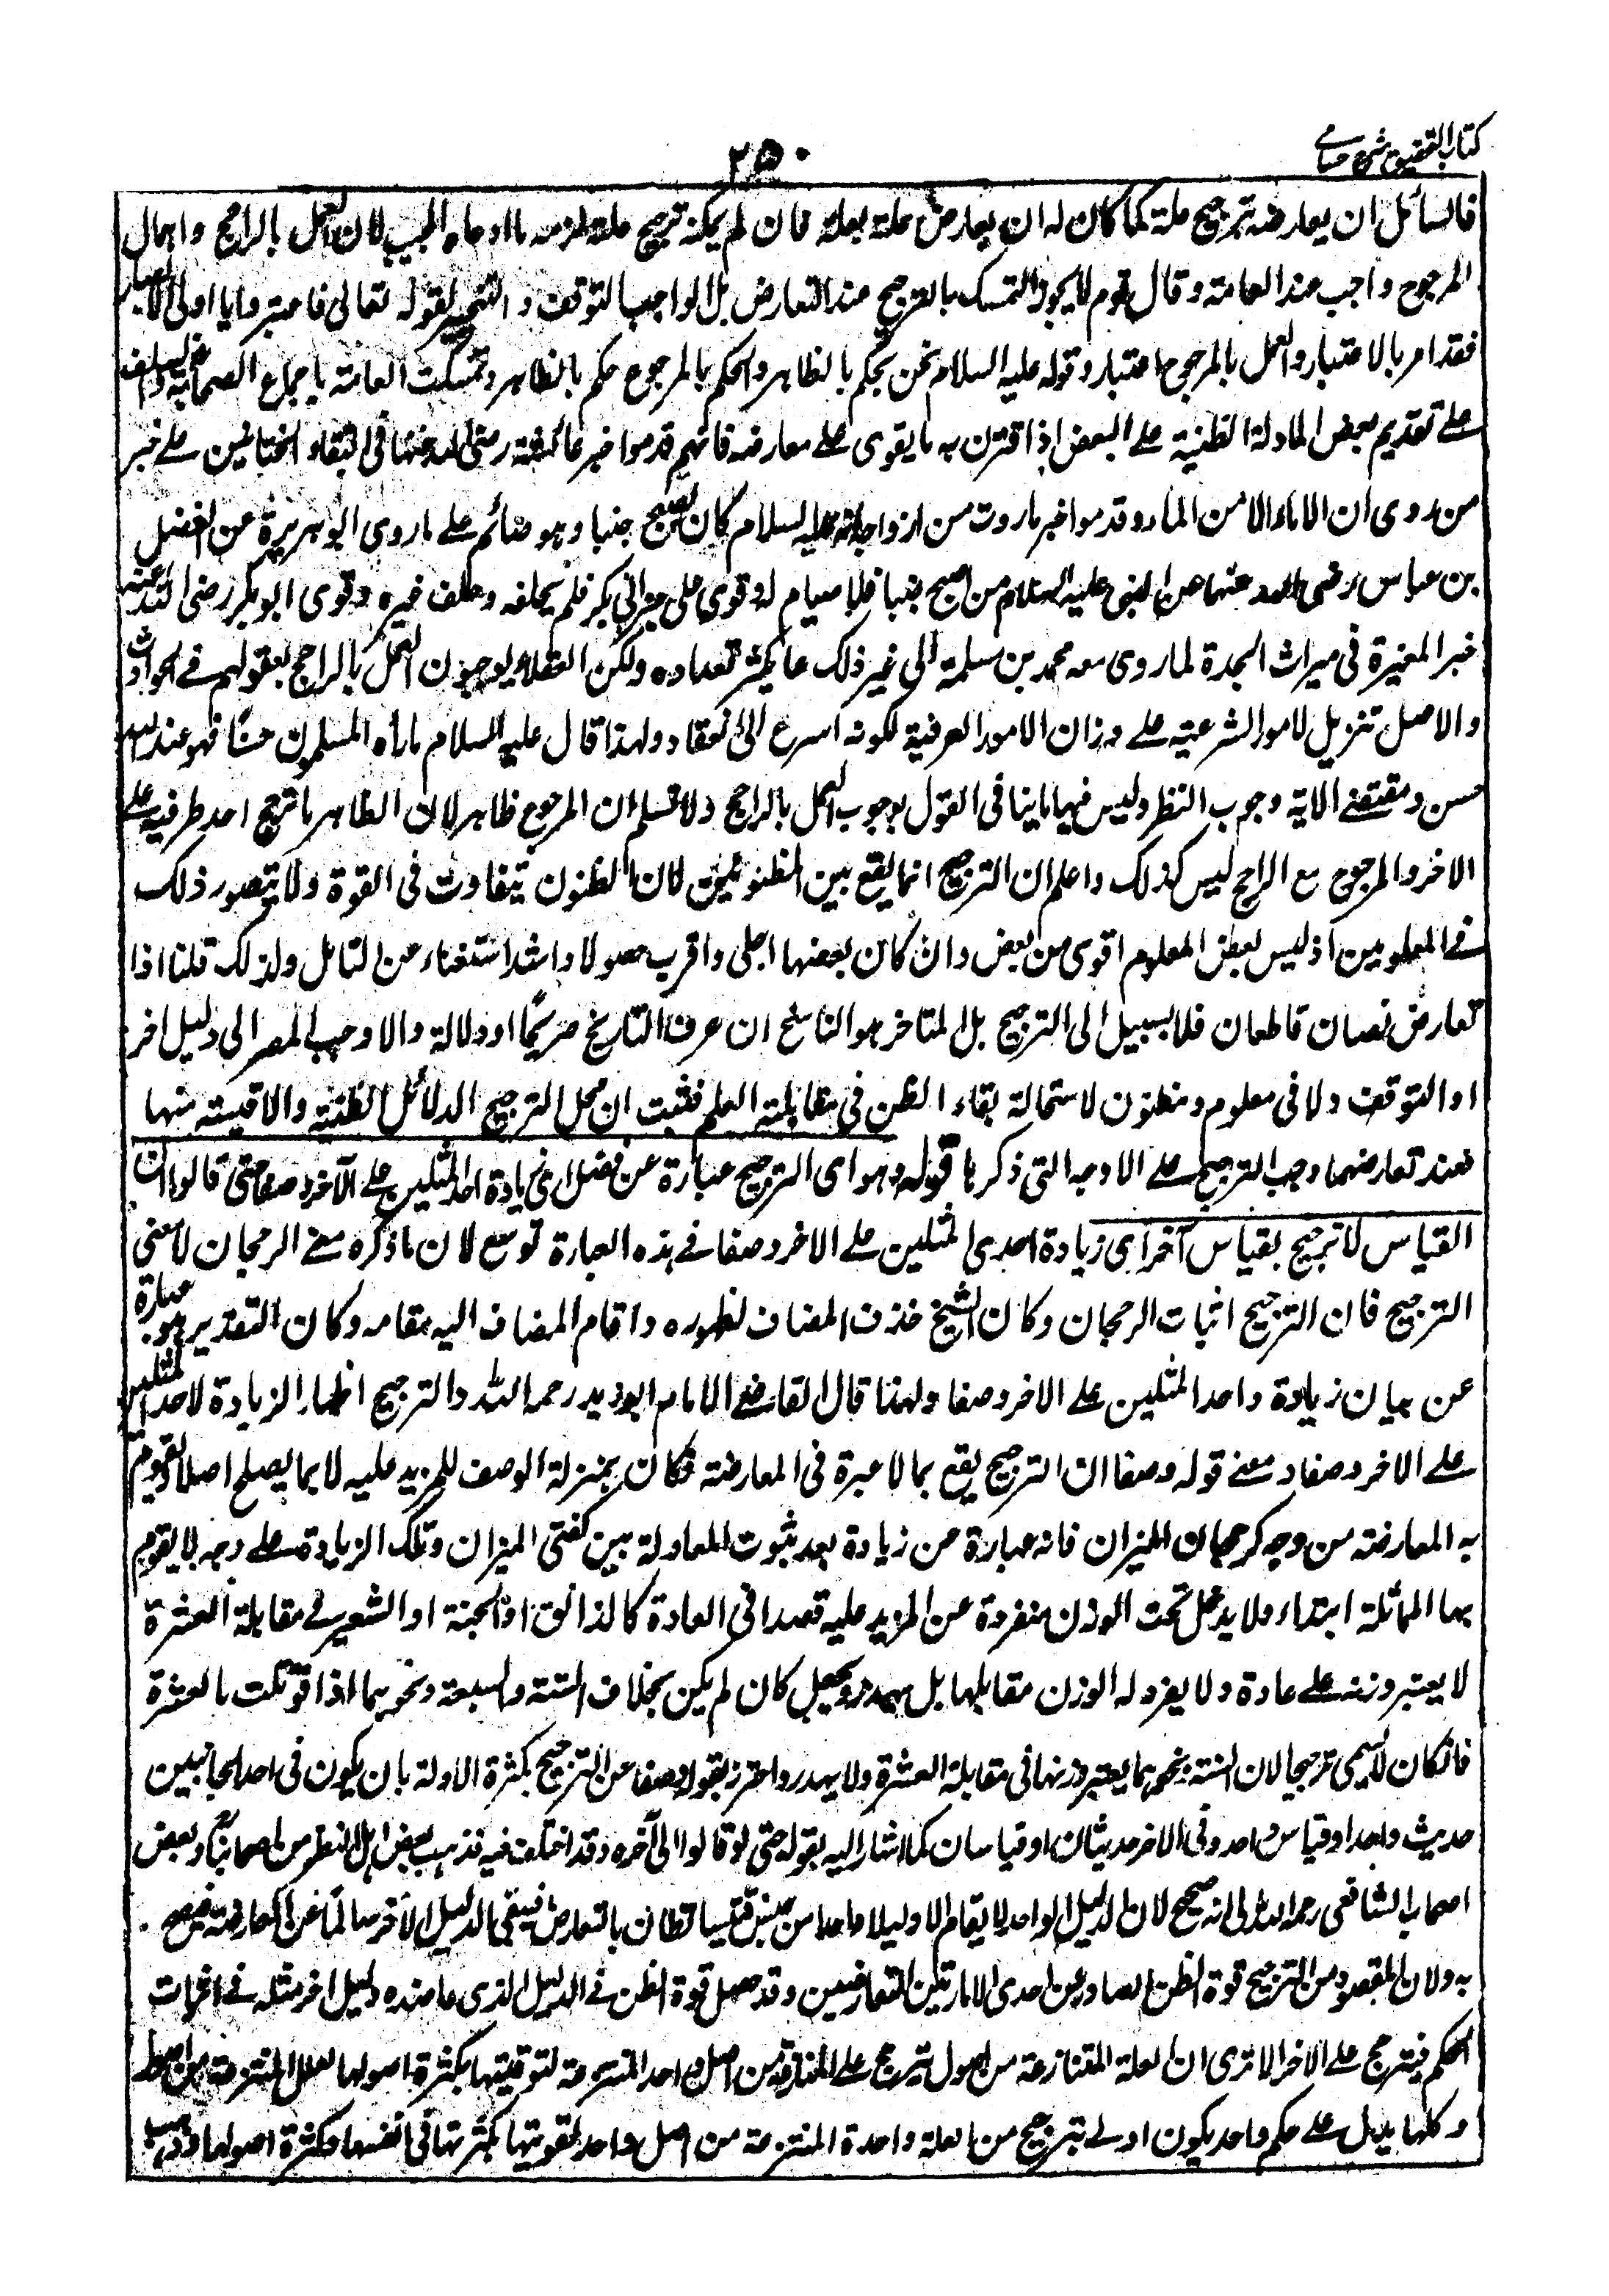 كتاب التحقيق شرح حسامى
٢٥٠
فالسائل ان يعارضه بترجيح علته كما كان له ان يعارض علته بعلته فان لم يمكنه ترجيح علته لزمه ما ادعاه المجيب لان العمل بالراجح واهمال
المرجوح واجب عند العامة وقال قوم لا يجوز التمسك بالترجيح عند التعارض بل الواجب التوقف و التخيير لقوله تعالى فاعتبروا يا اولى الابصار
فقد امر بالاعتبار والعمل بالمرجوح اعتبار وقوله عليه السلام نحن نحكم بالظاهر والحكم بالمرجوح حكم بالظاهر وتمسكت العامة باجماع الصحابة والسلف
على تقديم بعض الادلة الظنية على البعض اذا اقترن به ما يقوى على معارضه فانهم قدموا خبر عائشة رضى الله عنها فى التقاء الختانين على خبر
من روى ان الماء الا من الماء وقدموا خبر ما روت من ازواجه انه عليه السلام كان يصبح جنبا وهو صائم على ما روى ابو هريرة عن الفضل
بن عباس رضى الله عنهما عن النبى عليه السلام من اصبح جنبا فلا صيام له وقوى على خبر ابى بكر فلم يحلفه وحلف غيره وقوى ابو بكر رضى الله عنه
خبر المغيرة فى ميراث الجدة لما روى معه محمد بن سلمة الى غير ذلك مما يكثر تعداده ولكن العقلاء يوجبون العمل بالراجح بعقولهم فى الحوادث
والاصل تنزيل الامور الشرعية على وزان الامور العرفية لكونه اسرع الى الانقياد ولهذا قال عليه السلام ما رأه المسلمون حسنا فهو عند الله
حسن ومقتضى الاية وجوب النظر وليس فيها ما ينافى القول بوجوب العمل بالراجح ولا نسلم ان المرجوح ظاهر لان الظاهر ما ترجح احد طرفيه على
الاخر والمرجوح مع الراجح ليس كذلك واعلم ان الترجيح انما يقع بين المظنونين لان الظنون تتفاوت فى القوة ولا يتصور ذلك
فى المعلومين اذ ليس بعض المعلوم اقوى من بعض وان كان بعضها اجلى واقرب حصولا واشد استغناء عن التامل ولذلك قلنا اذا
تعارض نصان قاطعان فلا سبيل الى الترجيح بل المتاخر هو الناسخ ان عرف التاريخ صريحا او دلالة والا وجب المصير الى دليل اخر
او التوقف ولا فى معلوم ومظنون لاستحالة بقاء الظن فى مقابلة العلم فثبت ان محل الترجيح الدلائل الظنية والاقيسة منها
فعند تعارضهما وجب الترجيح على الاوجه التى ذكرها قوله وهو اى الترجيح عبارة عن فضل اى زيادة احد المثلين على الآخر وصفا حتى قالوا ان
القياس لا ترجيح بقياس آخر اى زيادة احدى المثلين على الاخر وصفا فى هذه العبارة توسع لان ما ذكره معنى الرجحان لا معنى
الترجيح فان الترجيح اثبات الرجحان وكان الشيخ حذف المضاف لظهوره واقام المضاف اليه مقامه وكان التقدير هو عبارة
عن بيان زيادة واحد المثلين على الاخر وصفا ولهذا قال القاضى الامام ابو زيد رحمه الله والترجيح اظهار الزيادة لاحد المثلين
على الاخر وصفا ومعنى قوله وصفا ان الترجيح يقع بما لا عبرة فى المعارضة فكان بمنزلة الوصف للمزيد عليه لا بما يصلح اصلا وتقوم
به المعارضة من وجه كرجحان الميزان فانه عبارة من زيادة بعد ثبوت المعادلة بين كفتى الميزان وتلك الزيادة على وجه لا يقوم
بها المماثلة ابتداء ولا يدخل تحت الوزن منفردة عن المزيد عليه قصدا فى العادة كالدانق او الحبة او الشعير فى مقابلة العشرة
لا يعتبر وزنه على عادة ولا يفرد له الوزن مقابلها بل يهدر ويجعل كان لم يكن بخلاف الستة والسبعة ونحوهما اذا قوبلت بالعشرة
فانه كان لا يسمى ترجيحا لان الستة ونحوها يعتبر وزنها فى مقابلة العشرة ولا يهدر واحترز بقوله وصفا عن الترجيح بكثرة الادلة بان يكون فى احد الجانبين
حديث واحد او قياس واحد وفى الاخر حديثان او قياسان كما اشار اليه بقوله حتى لو قالوا الى آخره وقد اختلف فيه فذهب بعض اهل النظر من اصحابنا وبعض
اصحاب الشافعى رحمه الله الى انه صحيح لان الدليل الواحد لا يقاوم الا دليلا واحدا من جنسه فيتساقطان بالتعارض فيبقى الدليل الآخر سالما عن المعارضة فيصح
به ولان المقصود من الترجيح قوة الظن الصادر عن احدى الامارتين المتعارضتين وقد حصل قوة الظن فى الدليل الذى عاضده دليل اخر مثله فى اثبات
الحكم فيترجح على الاخر الا ترى ان العلة المنتزعة من اصول ترجح على المنتزعة من اصل واحد لتقويتها بكثرة اصولها
وكلها يدل على حكم واحد يكون اولى بترجيح من العلة واحدة المنتزعة من اصل واحد لتقويتها بكثرتها فى انفسها وكثرة اصولها